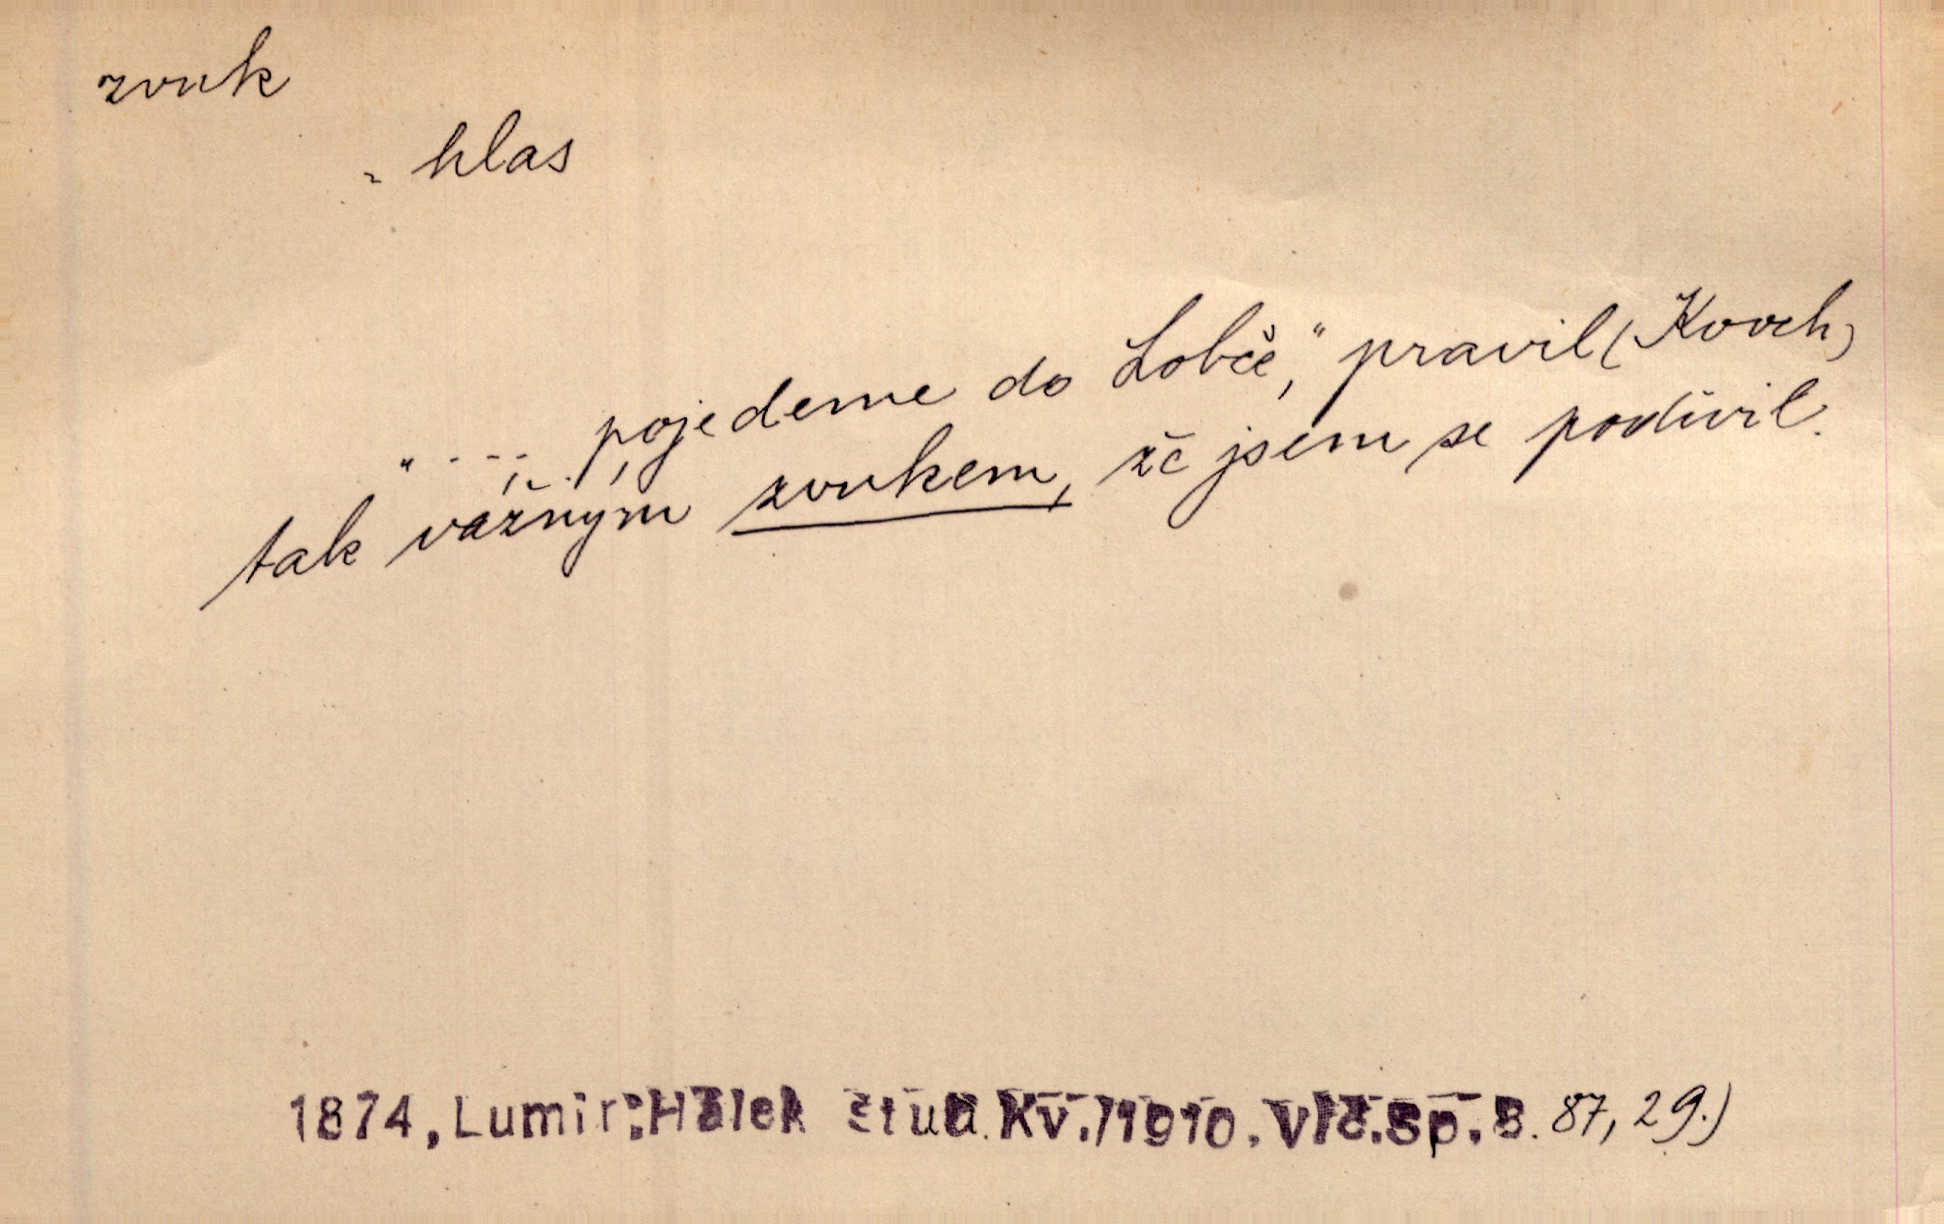 zvuk
= hlas
"..... pojedeme do Lobče," pravil (Kovch)
tak vážným zvukem, že jsem se podivil.
1874, Lumír; Hálek Stud. Kv./1910. Vlč.Sp. 8. 87, 29.)